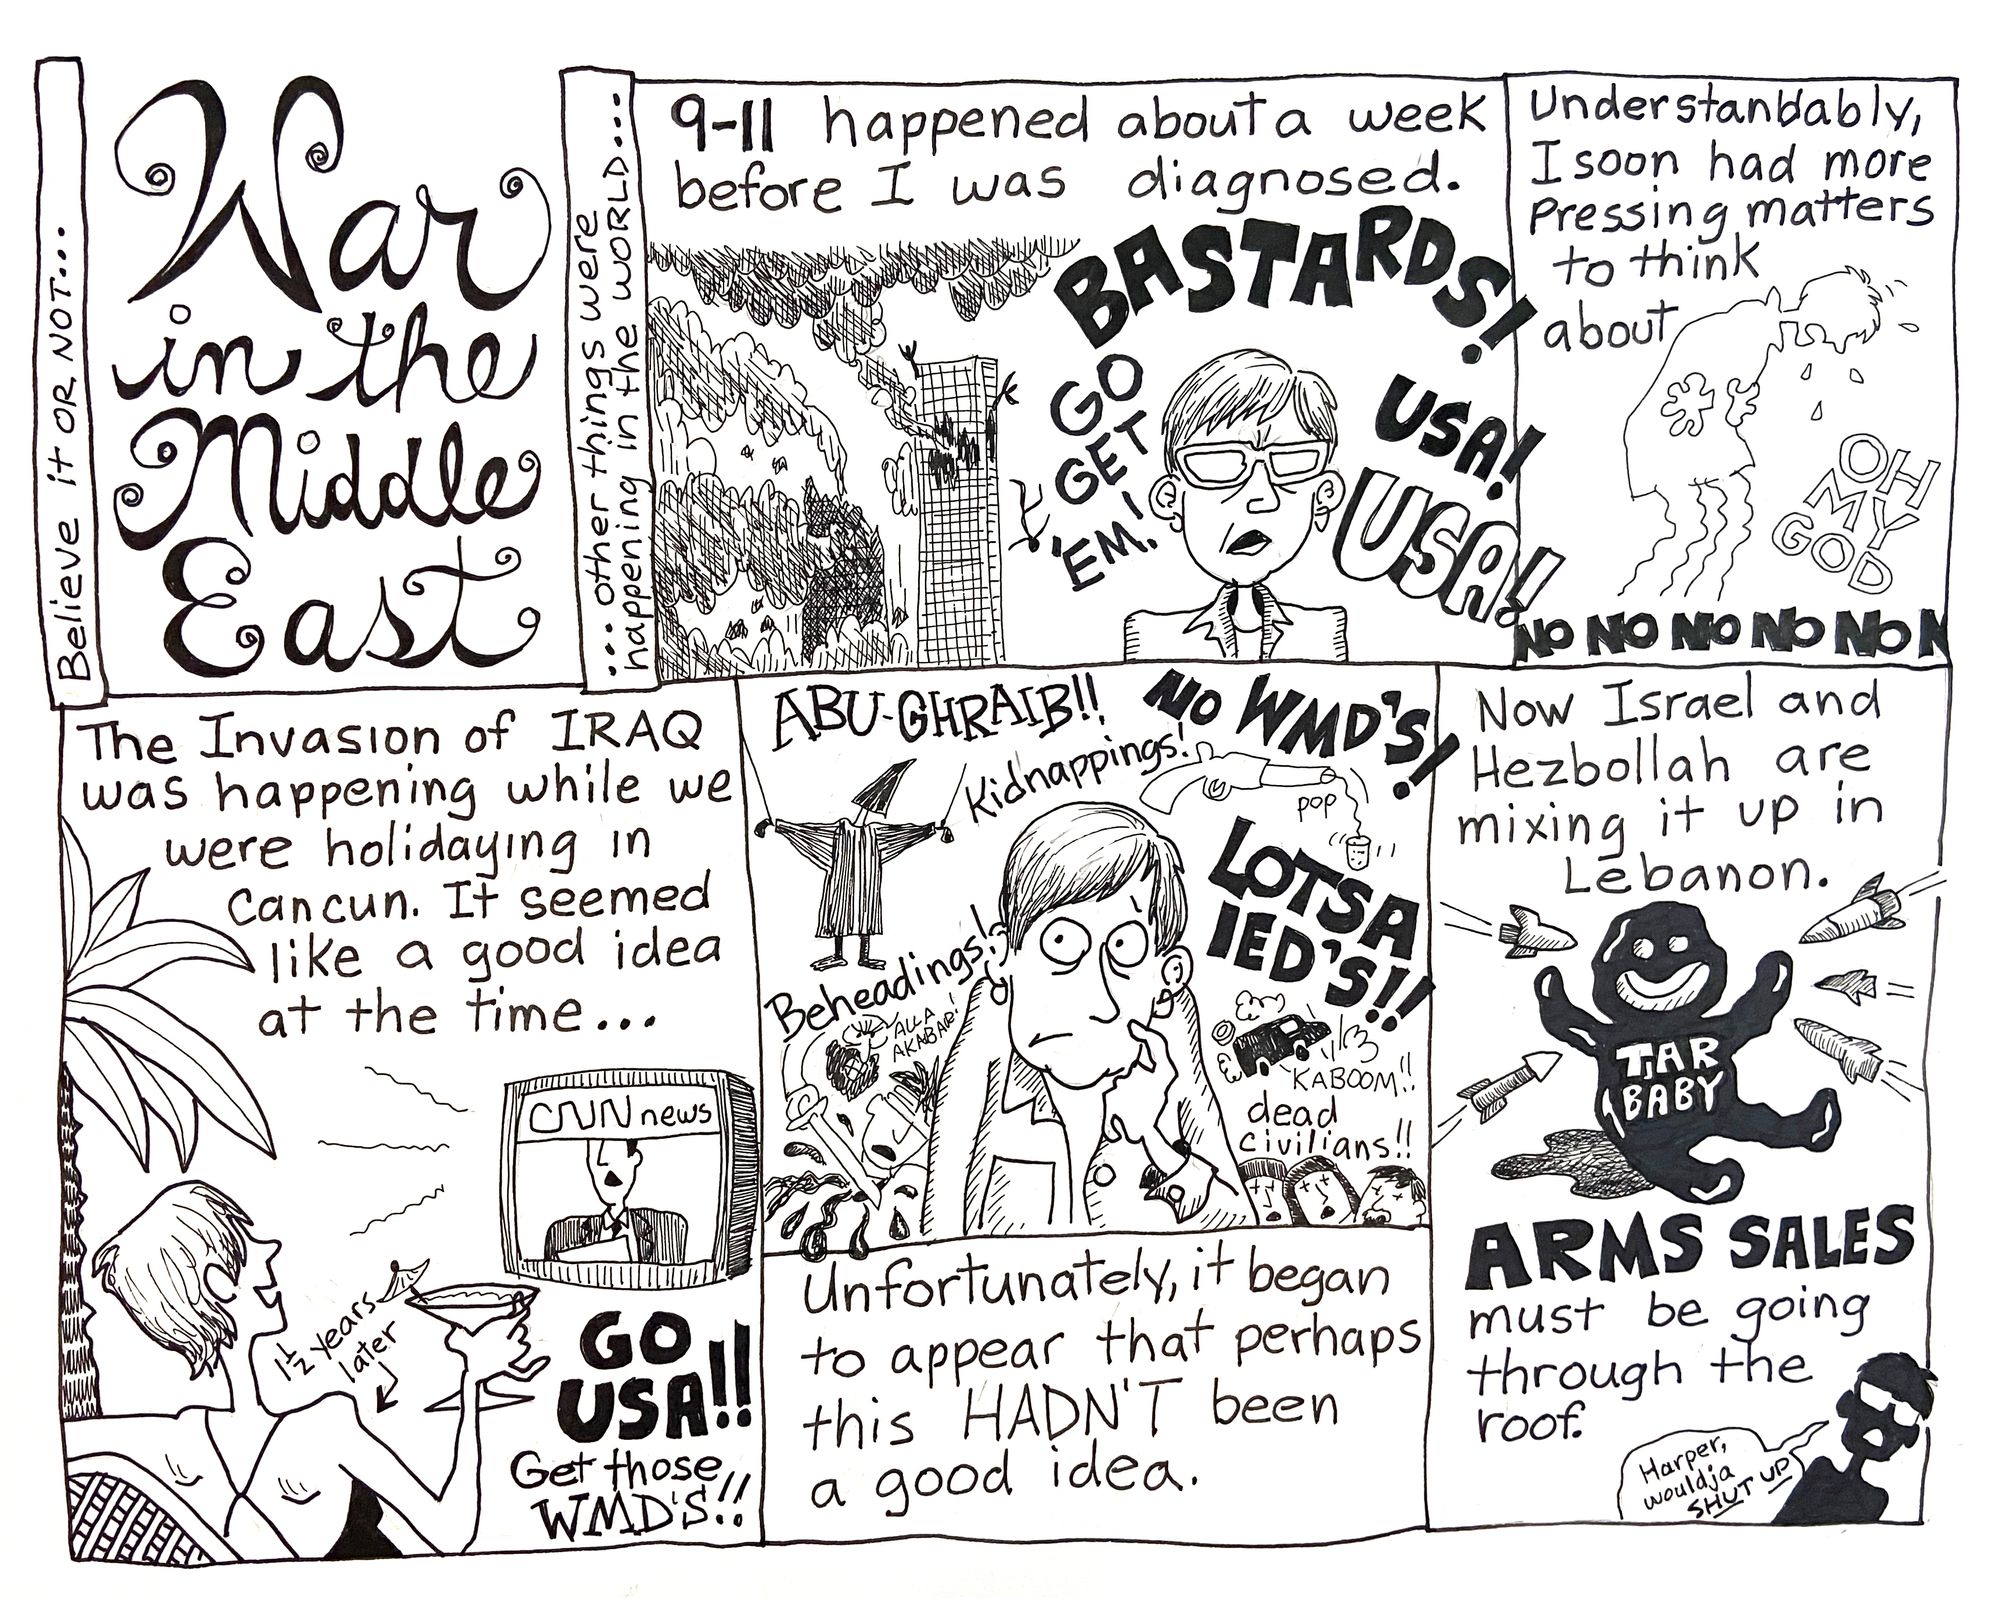 Believe it OR NOT...
War
in the
Middle
East.
...other things were
happening in the WORLD...
9-11 happened about a week
before I was diagnosed.
BASTARDS!
GO
GET
'EM!
USA!
USA!
Understandably,
I soon had more
Pressing matters
to think
about
OH
MY
GOD
NO NO NO NO NO N
The Invasion of IRAQ
was happening while we
were holidaying in
Cancun. It seemed
like a good idea
at the time...
CNN news
1½ years
later
GO
USA!!
Get those
WMD'S!!
ABU-GHRAIB!!
NO WMD'S!
Kidnappings!
pop
LOTSA
IED'S!!
Beheadings!
ALLA
AKABAR!
KABOOM!!
dead
civilians!!
Unfortunately, it began
to appear that perhaps
this HADN'T been
a good idea.
Now Israel and
Hezbollah are
mixing it up in
Lebanon.
TAR
BABY
ARMS SALES
must be going
through the
roof.
Harper,
wouldja
SHUT UP